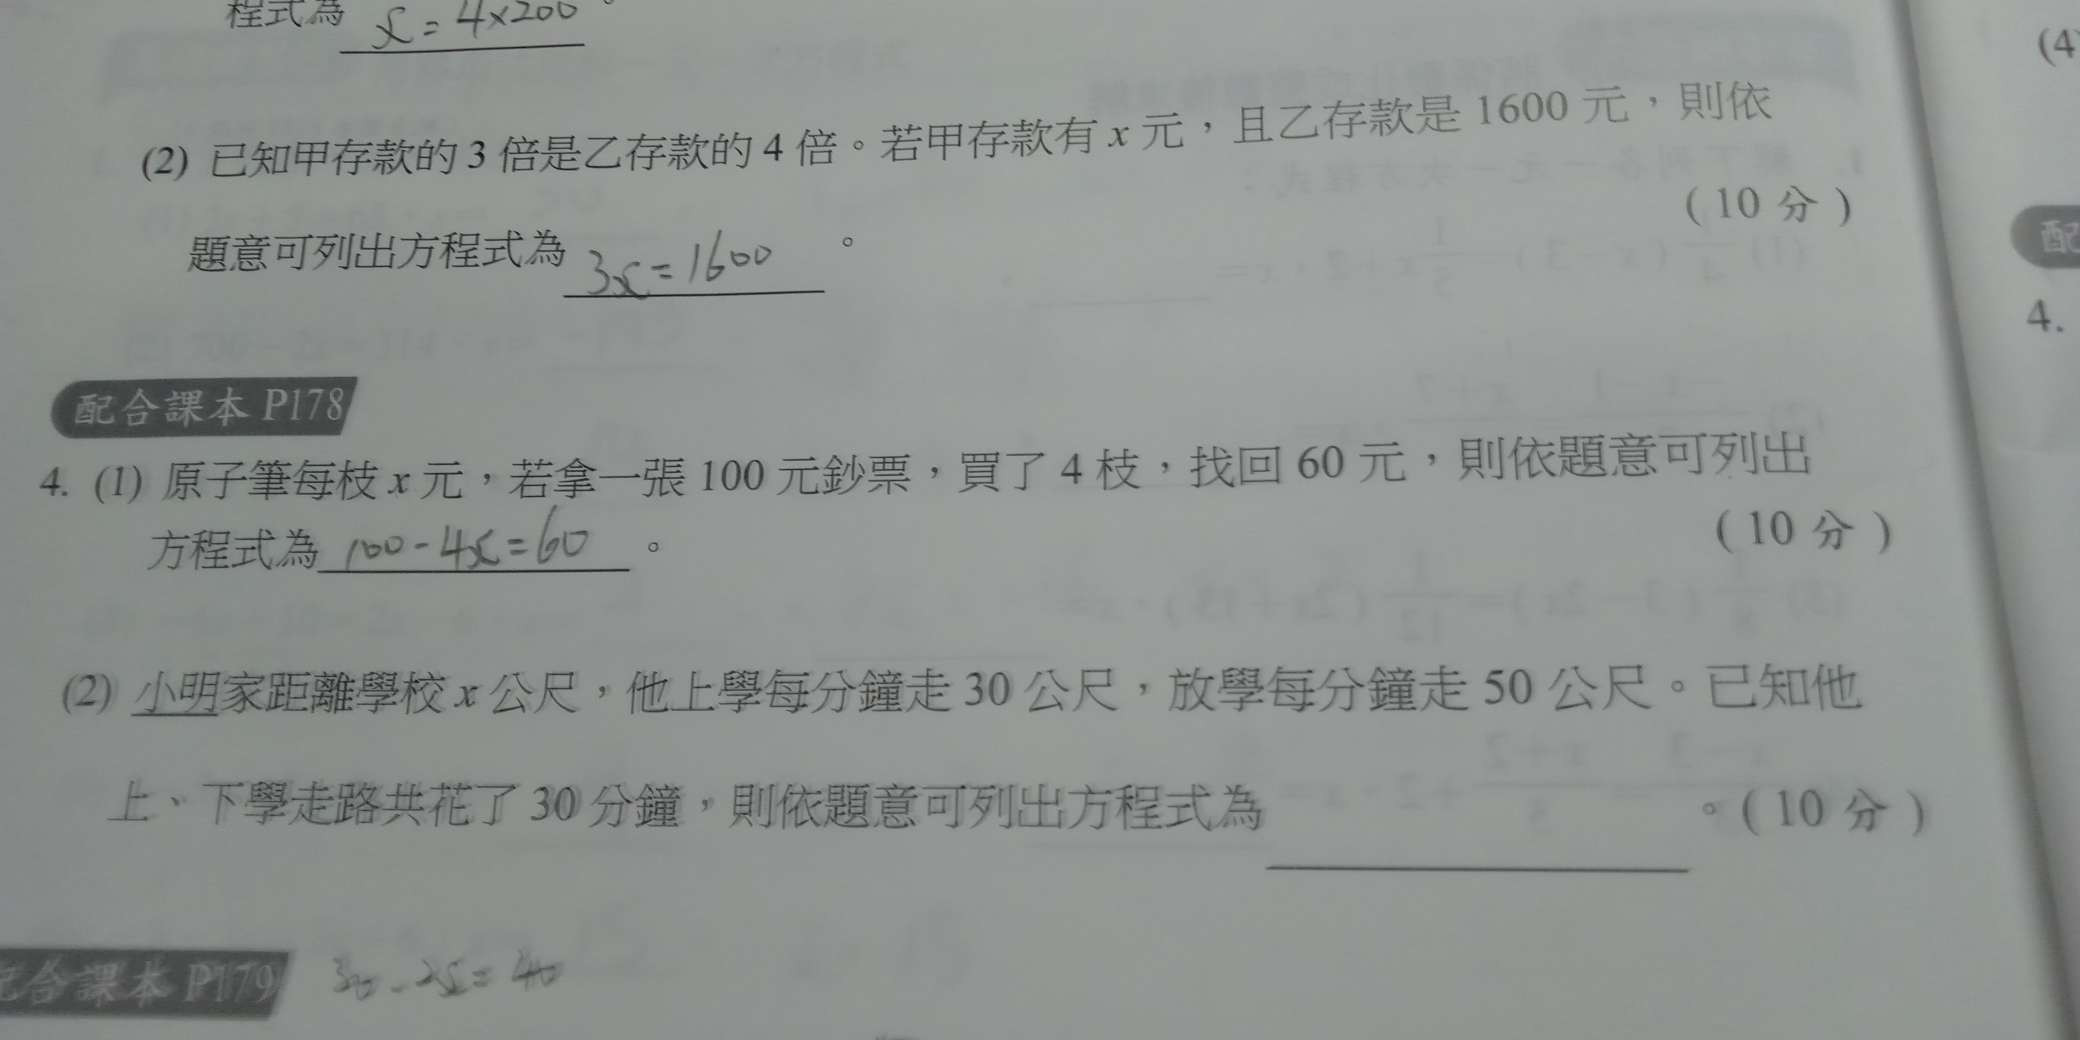 程式為 x=4×200。
(4
(2) 已知甲存款的 3 倍是乙存款的 4 倍。若甲存款有 x 元，且乙存款是 1600 元，則依
(10 分)
題意可列出方程式為 3x=1600 。
配
4.
配合課本 P178
4. (1) 原子筆每枝 x 元，若拿一張 100 元鈔票，買了 4 枝，找回 60 元，則依題意可列出
(10 分)
方程式為 100-4x=60 。
(2) 小明家距離學校 x 公尺，他上學每分鐘走 30 公尺，放學每分鐘走 50 公尺。已知他
上、下學走路共花了 30 分鐘，則依題意可列出方程式為 。(10 分)
配合課本 P179